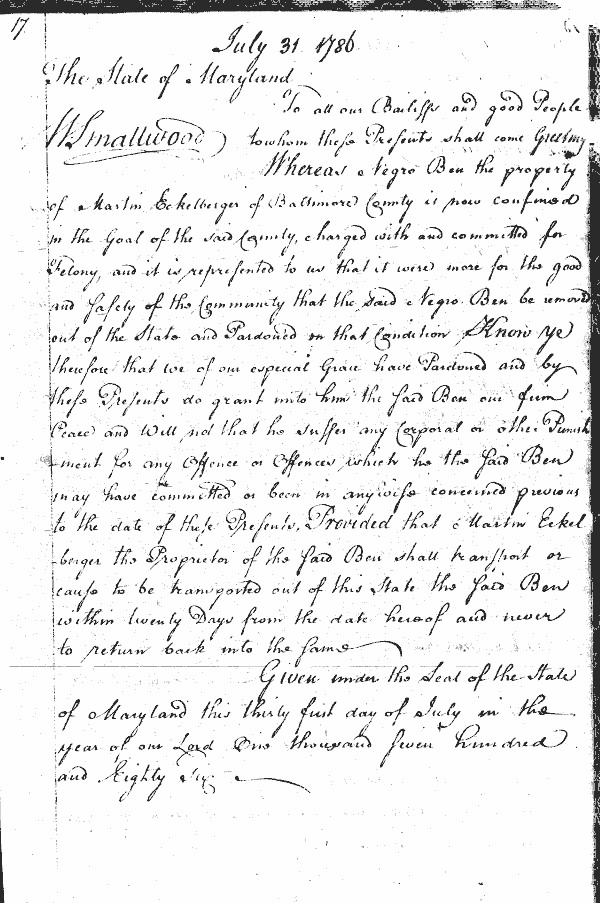 17
July 31 1786
The State of Maryland
To all our Bailiffs and good People
W Smallwood towhom these Presents shall come Greeting
Whereas Negro Ben the property
of Martin Eckelberger of Baltimore County is now confined
in the Goal of the said County, charged with and committed for
Felony, and it is represented to us that it were more for the good
and safety of the Community that the said Negro Ben be removed
out of the State and Pardoned on that Condition Know ye
therefore that we of our especial Grace have Pardoned and by
these Presents do grant unto him the said Ben our firm
Peace and Will not that he suffer any Corporal or other Punish
-ment for any Offence or Offences which he the said Ben
may have committed or been in anywise concerned previous
to the date of these Presents, Provided that Martin Eckel
-berger the Proprietor of the said Ben shall transport or
cause to be transported out of this State the said Ben
within twenty Days from the date hereof and never
to return back into the same
Given under the Seal of the State
of Maryland this thirty first day of July in the
year of our Lord One thousand seven hundred
and Eighty Six